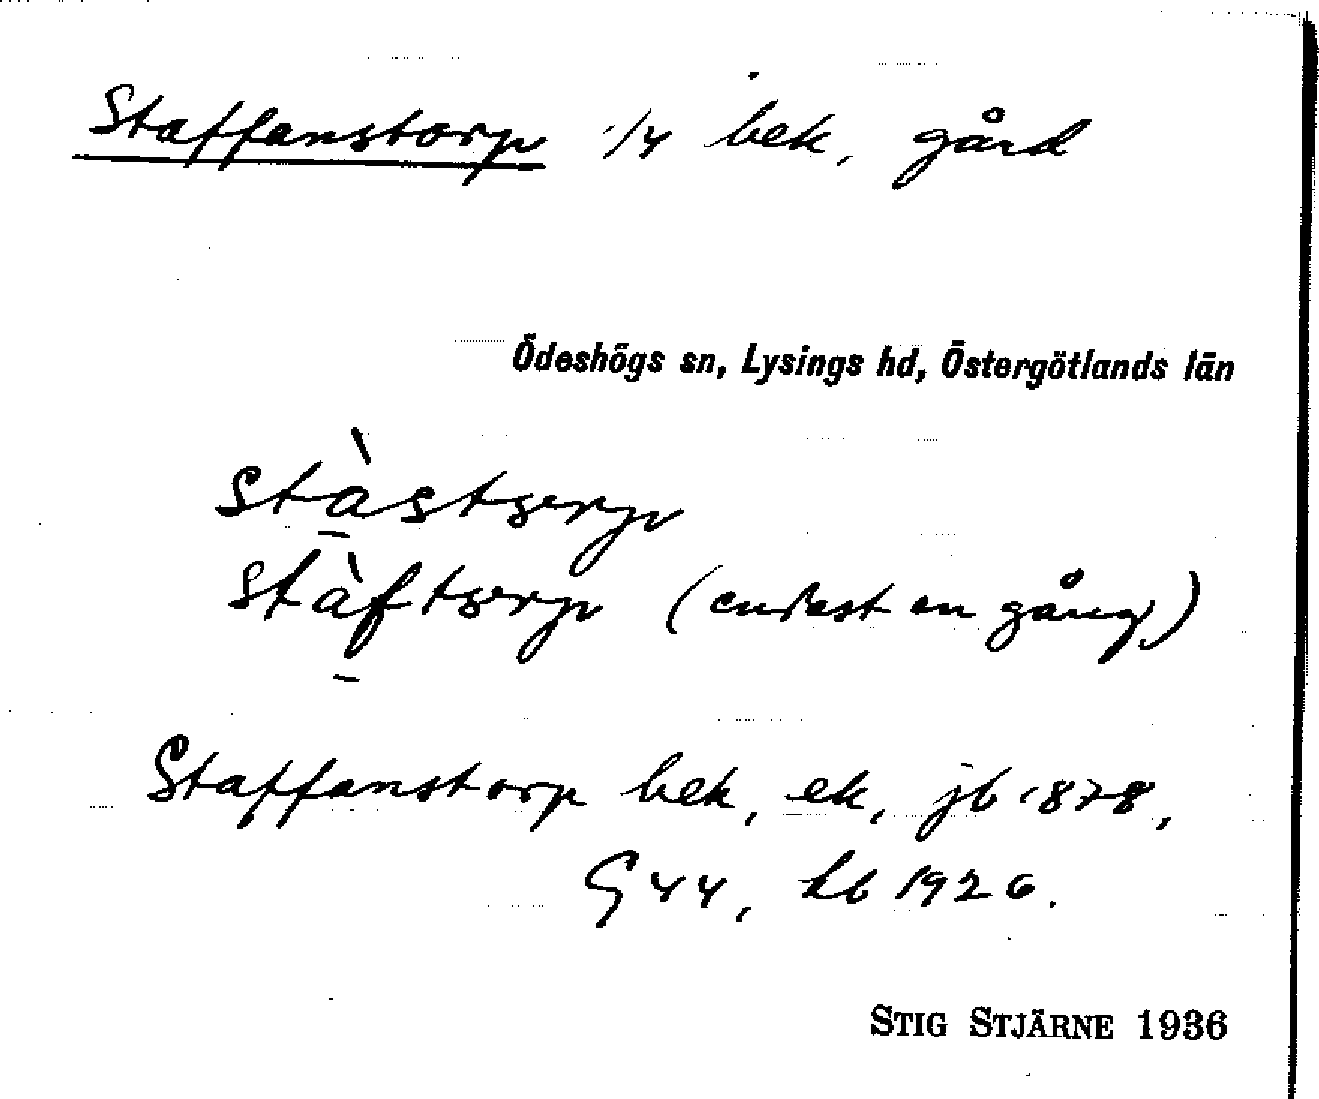 Staffanstorp 1/4 bek, gård
Ödeshögs sn, Lysings hd, Östergötlands län
(endast en gång)
Staffanstorp bek, ek, jb 1878,
G 44, hb 1926.
STIG STJÄRNE 1936